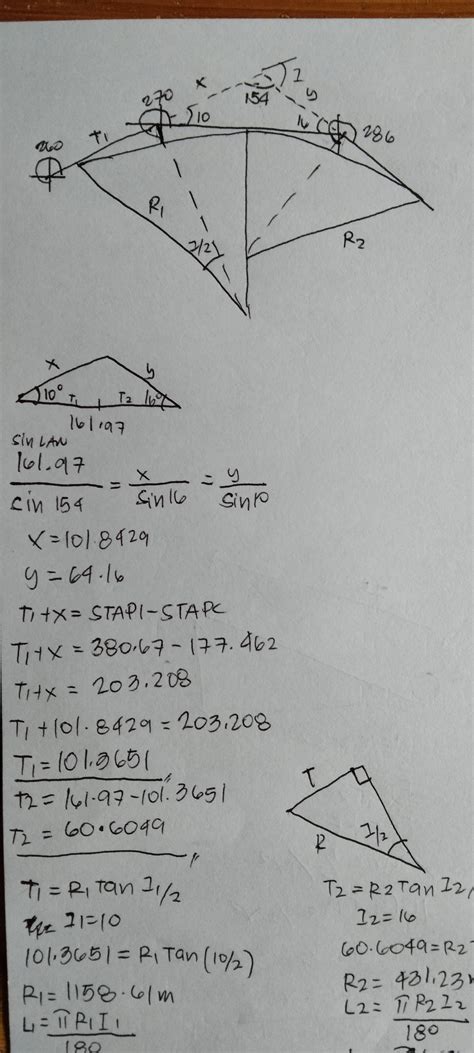 270
x
I
y
154
10
16
286
260
T1
R1
I/2
R2
x
y
10°
T1
T2
16°
161.97
sin LAW
161.97
sin 154
=
x
sin 16
=
y
sin 10
x = 101.8429
y = 64.16
T1 + x = STAPI - STAPC
T1 + x = 380.67 - 177.462
T1 + x = 203.208
T1 + 101.8429 = 203.208
T1 = 101.3651
T2 = 161.97 - 101.3651
T2 = 60.6049
T
R
I/2
T1 = R1 Tan I1/2
I1 = 10
101.3651 = R1 Tan (10/2)
R1 = 1158.61 m
L = πR1 I1
180
T2 = R2 Tan I2/
I2 = 16
60.6049 = R2
R2 = 431.23
L2 = πR2 I2
180